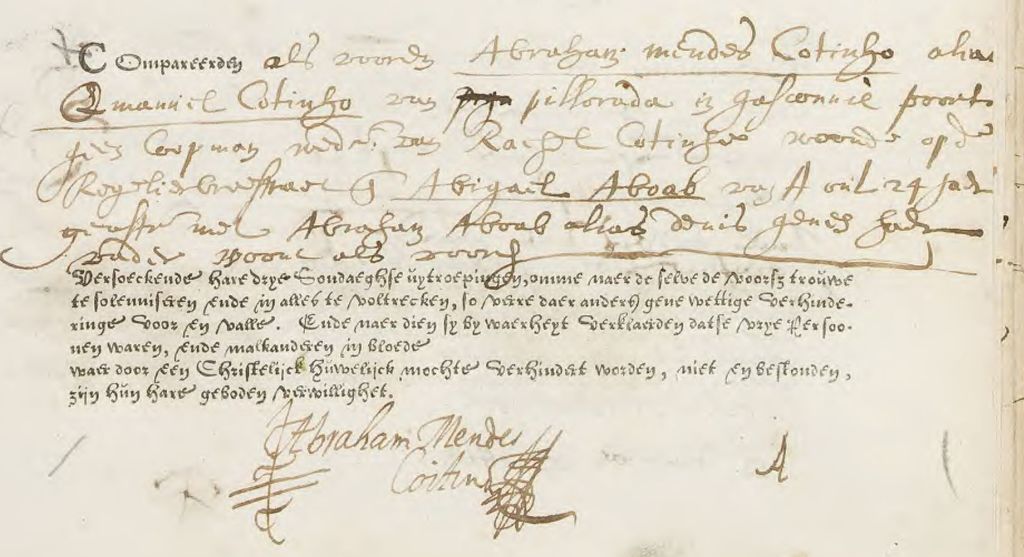 Compareerden als vooren Abraham mendes Cotinho alias
Emanuel Cotinho van pillorada in gasconnie poort
geen Coopman wedr. van Rachel Cotinho woonde op de
Regeliersbreestraet & Abigael Aboab van A out 24 Jaer
geass. met Abraham Aboab alias denis genes haer
vader woont als vooren
Versoeckende hare drye Sondaeghse uytroepingen, omme naer de selve de voorsz trouwe
te solenniseren ende in alles te voltrecken, so verre daer anders gene wettige verhinde-
ringe voor en valle. Ende naer dien sy by waerheyt verklaerden datse vrye Persoo-
nen waren, ende malkanderen in bloede
waer door een Christelijck Huwelijck mochte verhindert worden, niet en bestonden,
zijn hun hare geboden verwillighet.
Abraham Mendes
Coitinho
A